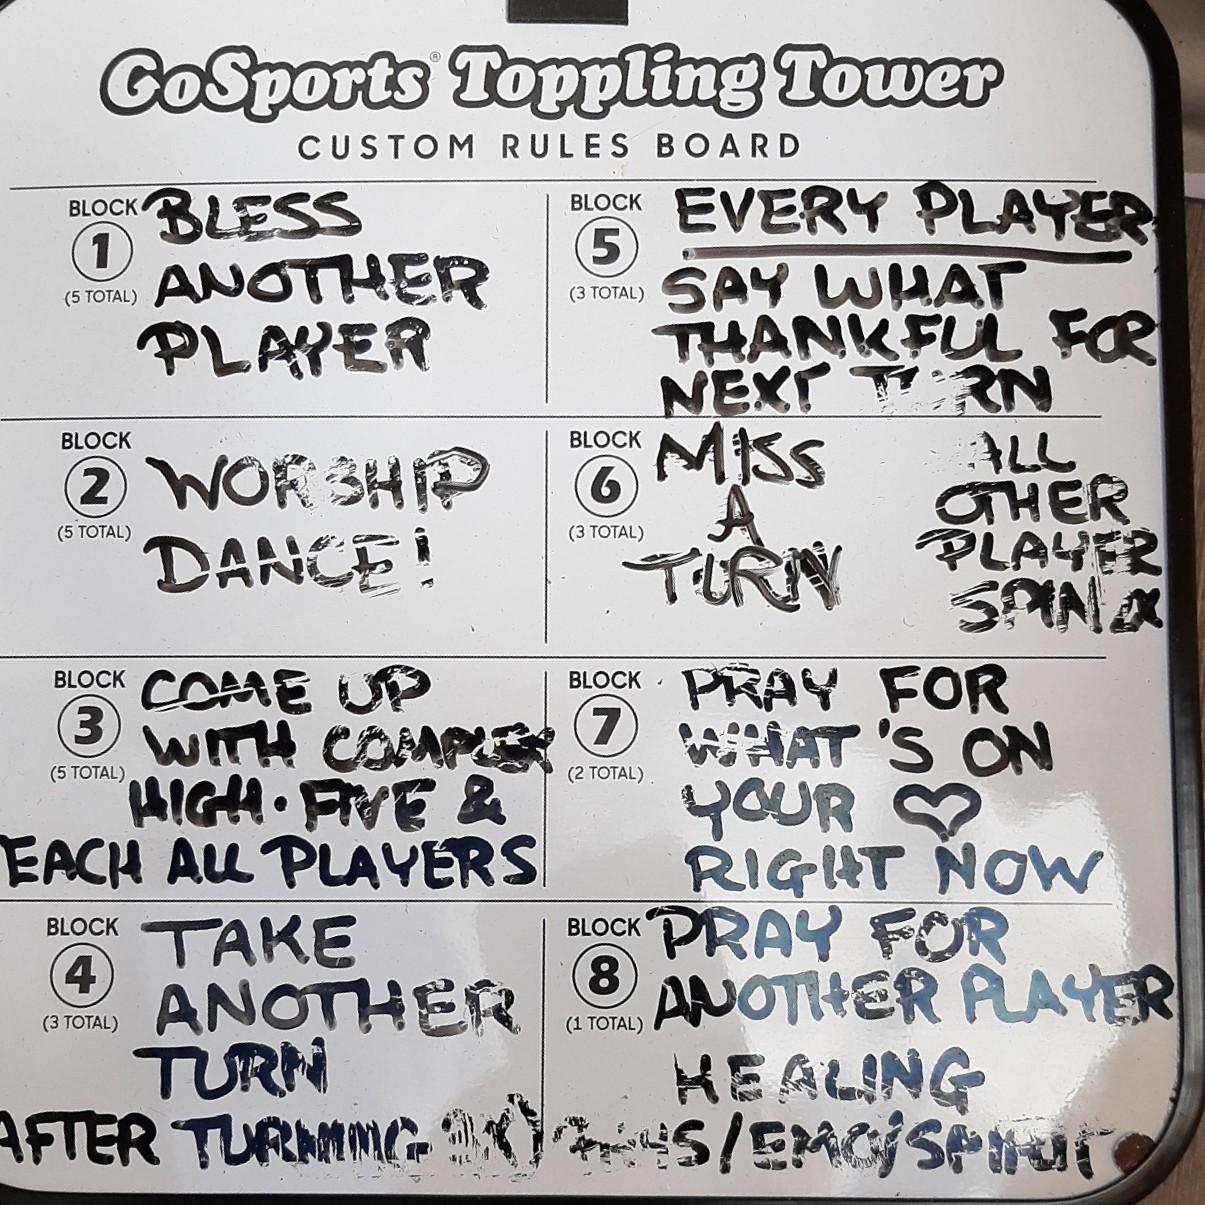 GoSports® Toppling Tower
CUSTOM RULES BOARD
BLOCK
1
(5 TOTAL)
BLESS
ANOTHER
PLAYER
BLOCK
2
(5 TOTAL)
WORSHIP
DANCE!
BLOCK
3
(5 TOTAL)
COME UP
WITH COMPLEX
HIGH-FIVE &
TEACH ALL PLAYERS
BLOCK
4
(3 TOTAL)
TAKE
ANOTHER
TURN
AFTER TURNING
BLOCK
5
(3 TOTAL)
EVERY PLAYER
SAY WHAT
THANKFUL FOR
NEXT TURN
BLOCK
6
(3 TOTAL)
MISS
A
TURN
ALL
OTHER
PLAYER
SPIN
BLOCK
7
(2 TOTAL)
PRAY FOR
WHAT'S ON
YOUR ♡
RIGHT NOW
BLOCK
8
(1 TOTAL)
PRAY FOR
ANOTHER PLAYER
HEALING